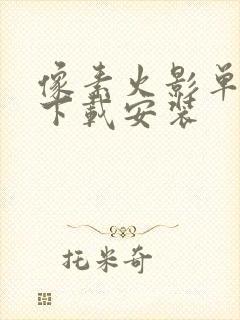 像素火影单
下载安装
托米奇